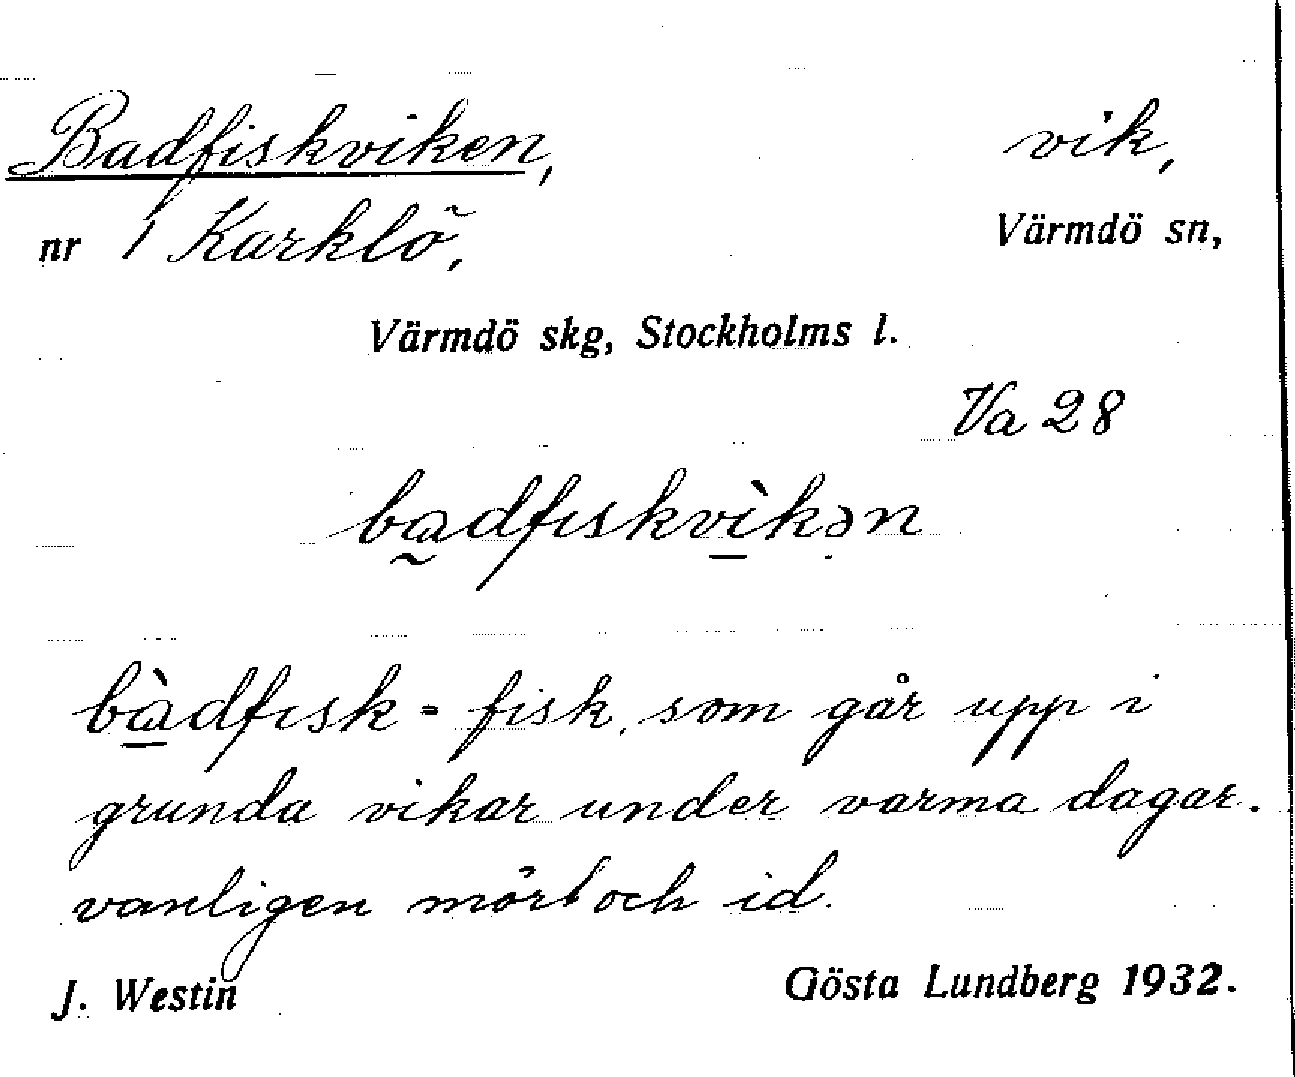 Badfiskviken, vik,
nr 1 Karklö, Värmdö sn,
Värmdö skg, Stockholms l.
Va 28
ba̰dfıskvì̠kən
bà̠dfısk - fisk, som går upp i
grunda vikar under varma dagar.
vanligen mört och id.
J. Westin Gösta Lundberg 1932.